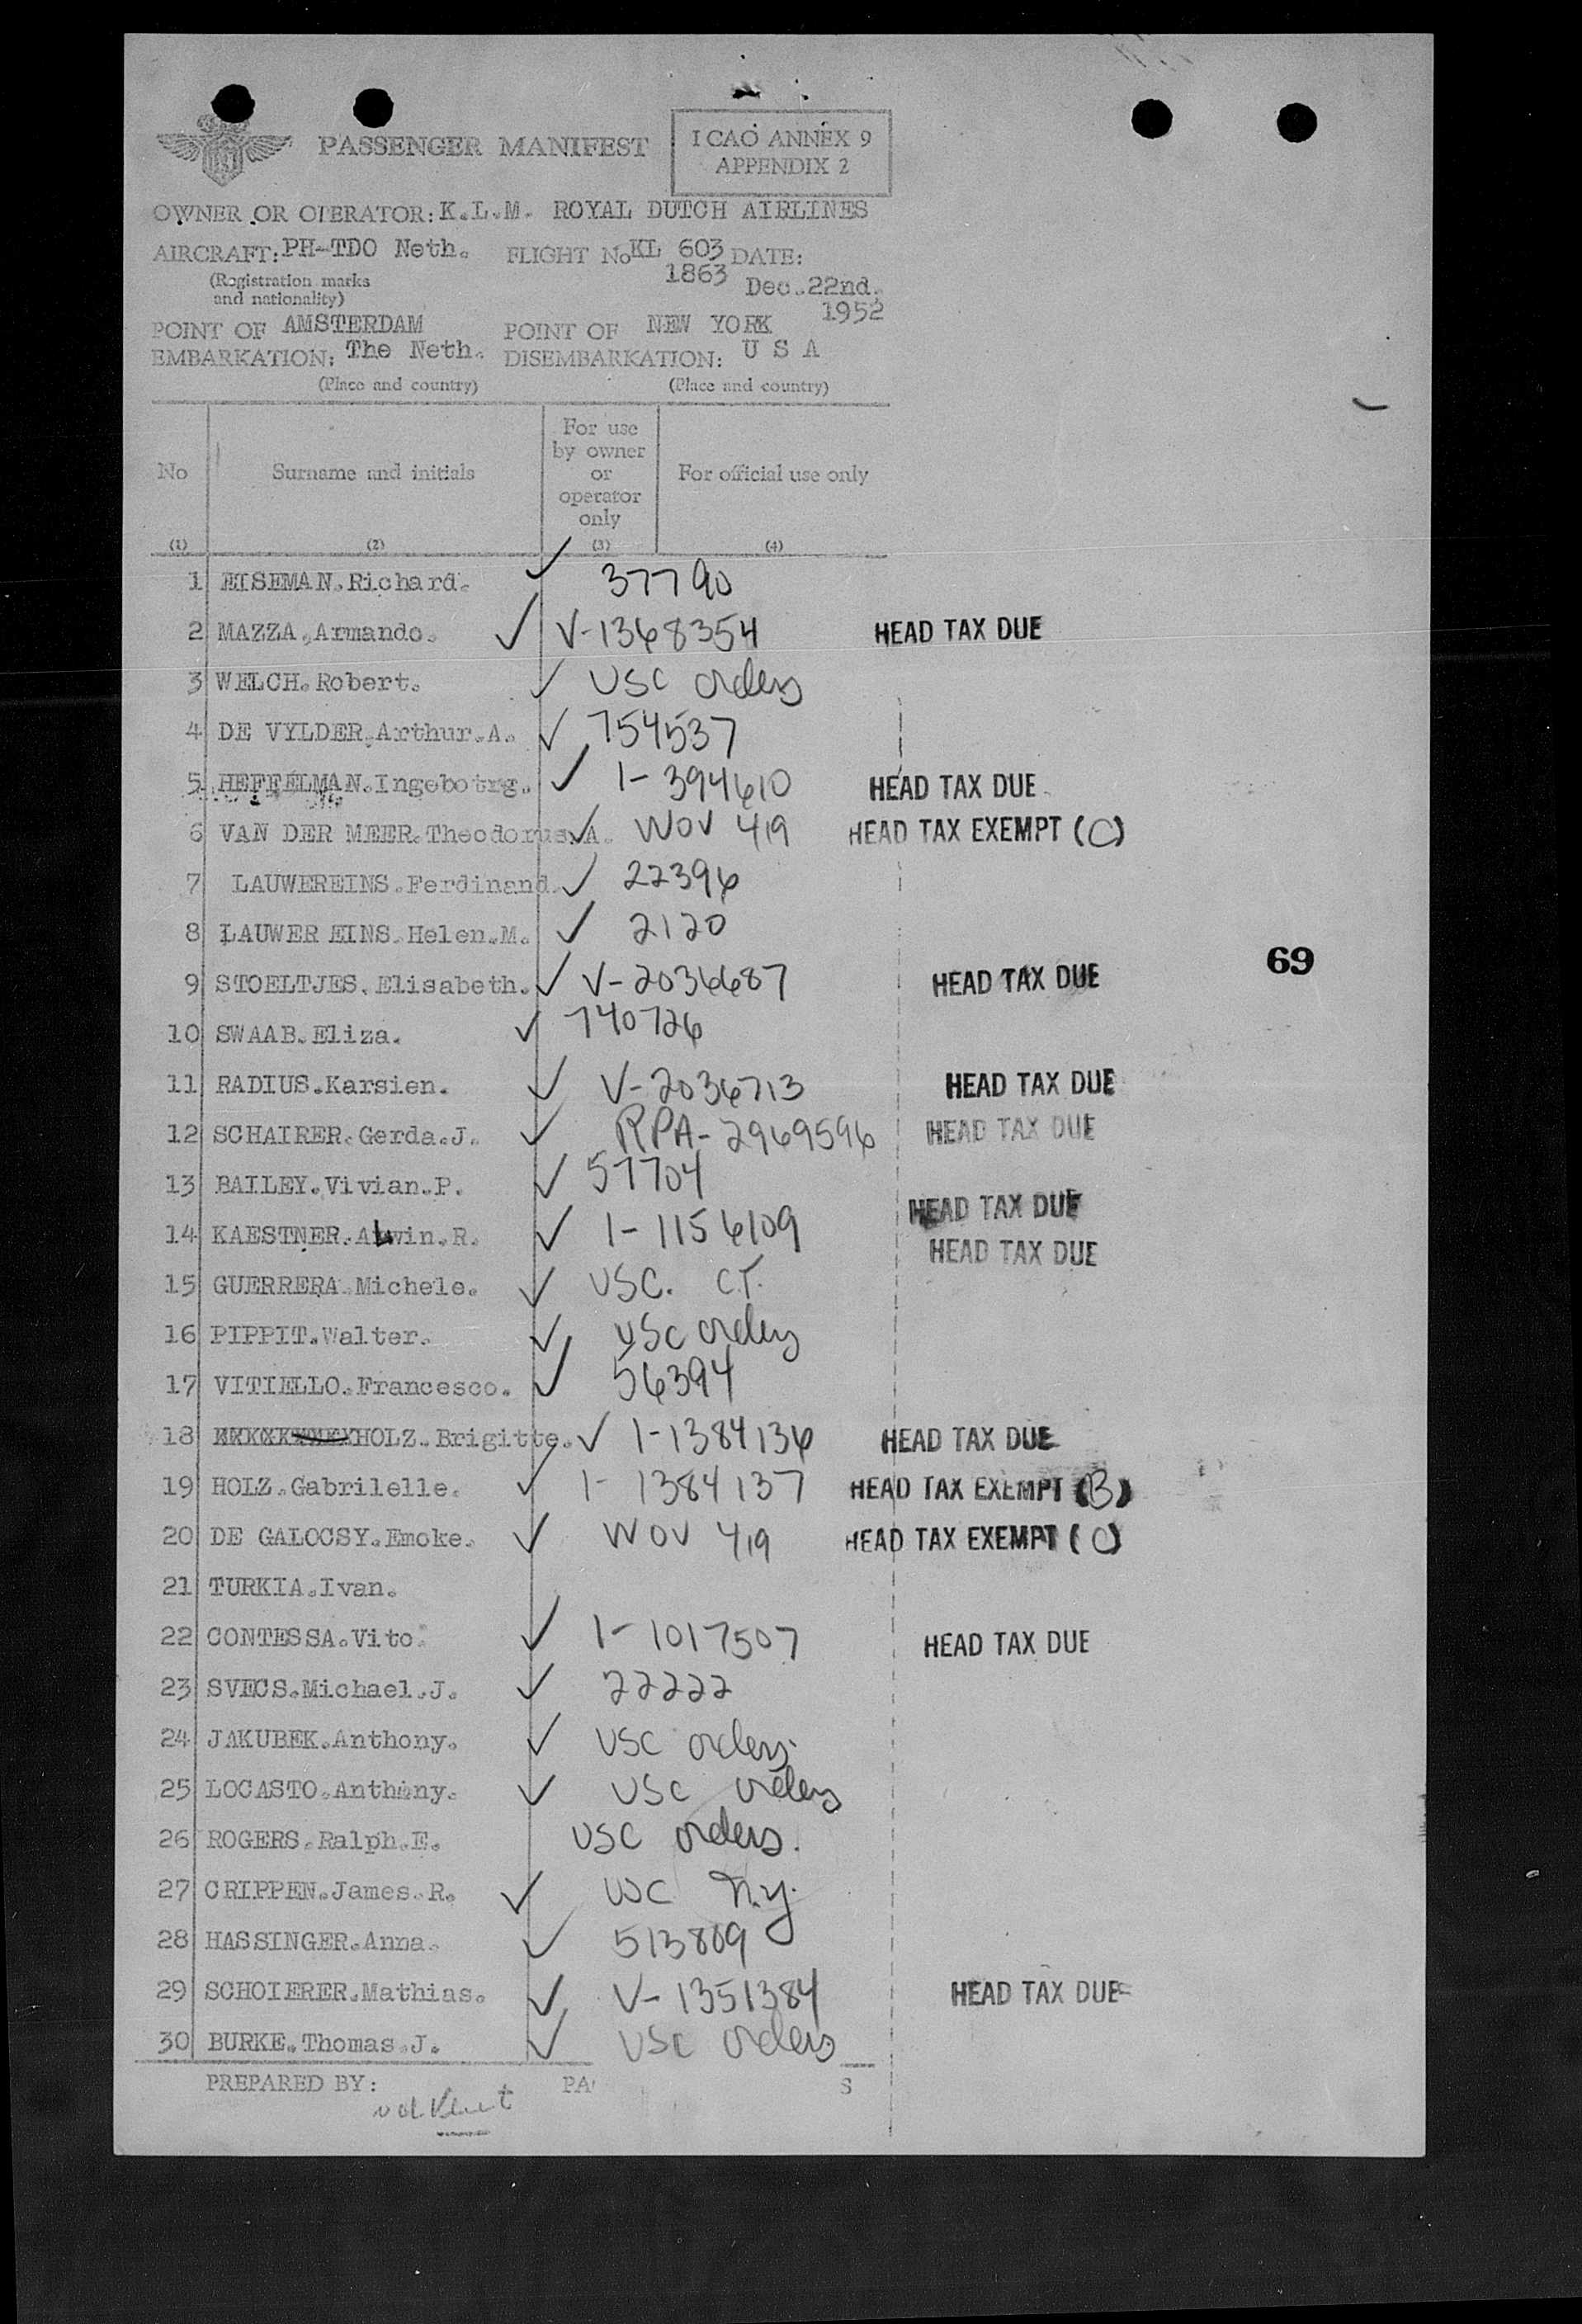 PASSENGER MANIFEST
ICAO ANNEX 9
APPENDIX 2
OWNER OR OPERATOR: K.L.M. ROYAL DUTCH AIRLINES
AIRCRAFT: PH-TDO Neth. FLIGHT No KL 603 DATE:
(Registration marks and nationality) 1863 Dec.22nd. 1952
POINT OF EMBARKATION: AMSTERDAM The Neth. POINT OF DISEMBARKATION: NEW YORK U S A
(Place and country) (Place and country)
No Surname and initials For use by owner or operator only For official use only
(1) (2) (3) (4)
1 EISEMAN.Richard. ✓ 37790
2 MAZZA.Armando. ✓ V-1368354 HEAD TAX DUE
3 WELCH.Robert. ✓ USC orders
4 DE VYLDER.Arthur.A. ✓ 754537
5 HEFFELMAN.Ingebotrg. ✓ 1-394610 HEAD TAX DUE
6 VAN DER MEER.Theodorus.A. ✓ WOV 419 HEAD TAX EXEMPT (C)
7 LAUWEREINS.Ferdinand. ✓ 22396
8 LAUWER EINS.Helen.M. ✓ 2120
69
9 STOELTJES.Elisabeth. ✓ V-2036687 HEAD TAX DUE
10 SWAAB.Eliza. ✓ 740726
11 RADIUS.Karsien. ✓ V-2036713 HEAD TAX DUE
12 SCHAIRER.Gerda.J. ✓ RPA-2969596 HEAD TAX DUE
13 BAILEY.Vivian.P. ✓ 57704 HEAD TAX DUE
14 KAESTNER.Alwin.R. ✓ 1-1156109 HEAD TAX DUE
15 GUERRERA.Michele. ✓ USC. C.T.
16 PIPPIT.Walter. ✓ USC orders
17 VITIELLO.Francesco. ✓ 56394
18 HOLZ.Brigitte. ✓ 1-1384136 HEAD TAX DUE
19 HOLZ.Gabrilelle. ✓ 1-1384137 HEAD TAX EXEMPT (B)
20 DE GALOCSY.Emoke. ✓ WOV 419 HEAD TAX EXEMPT (C)
21 TURKIA.Ivan.
22 CONTESSA.Vito. ✓ 1-1017507 HEAD TAX DUE
23 SVECS.Michael.J. ✓ 22222
24 JAKUBEK.Anthony. ✓ USC orders.
25 LOCASTO.Anthony. ✓ USC orders
26 ROGERS.Ralph.E. USC orders.
27 CRIPPEN.James.R. ✓ USC N.Y.
28 HASSINGER.Anna. ✓ 513809
29 SCHOIERER.Mathias. ✓ V-1351384 HEAD TAX DUE
30 BURKE.Thomas.J. ✓ USC orders
PREPARED BY: PA S